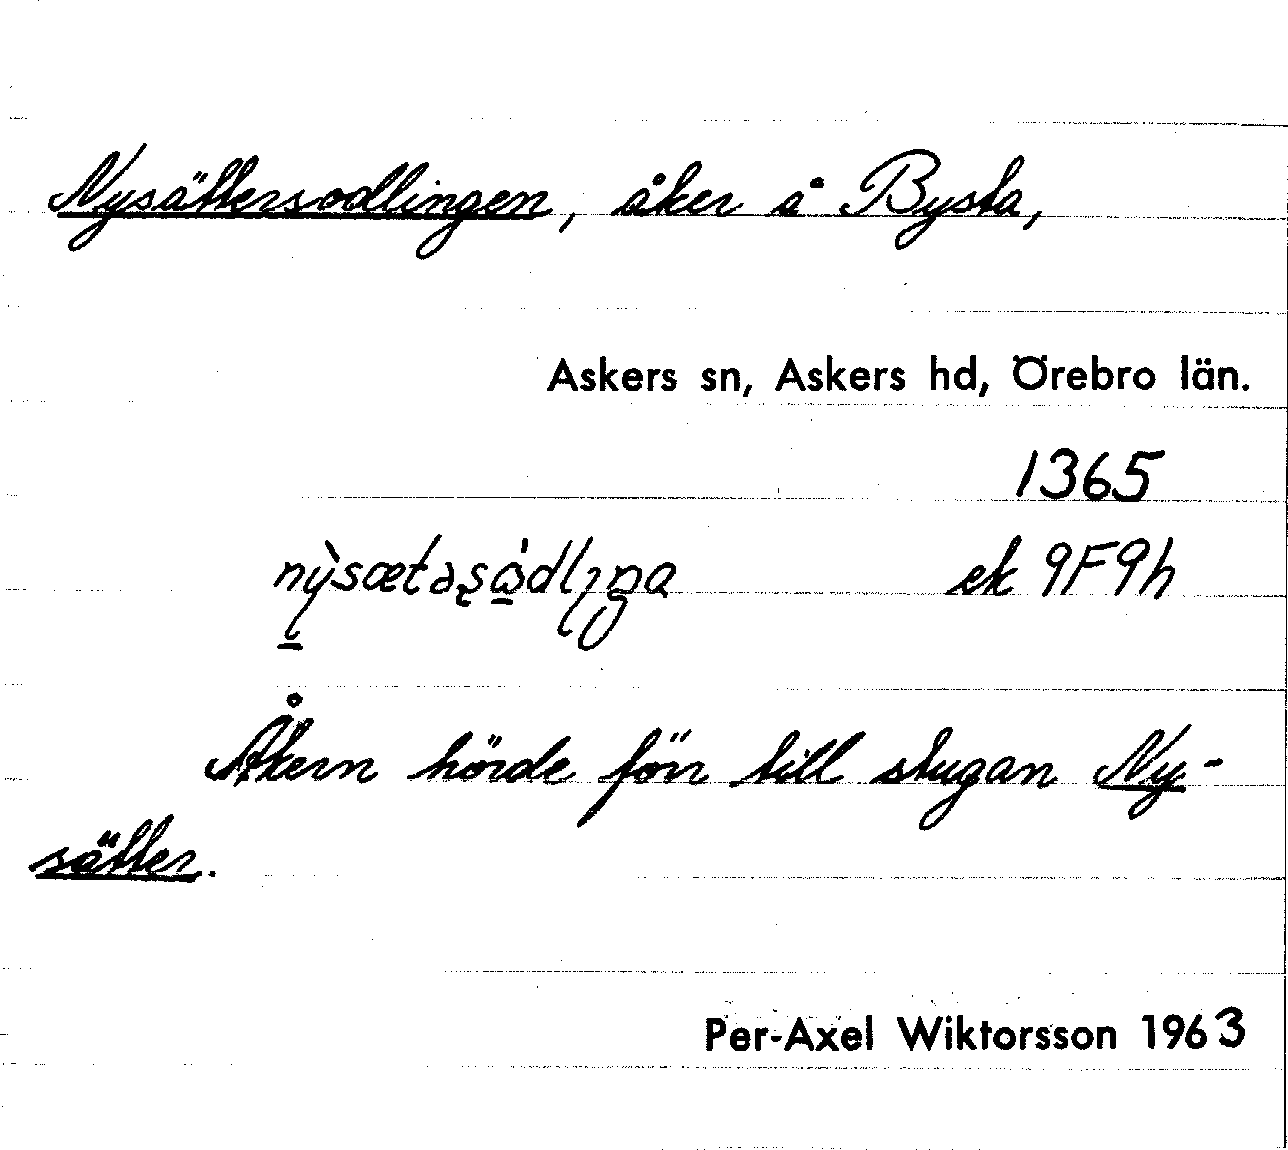 Nysättersodlingen, åker å Bysta,
Askers sn, Askers hd, Örebro län.
1365
ek 9F9h
Åkern hörde förr till stugan Ny-
sätter.
Per-Axel Wiktorsson 1963